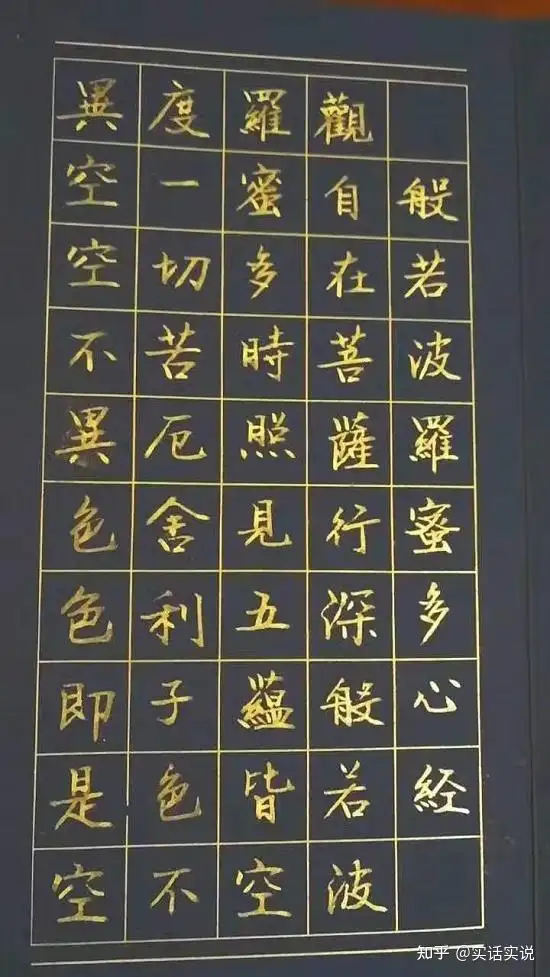 般若波羅蜜多心經
觀自在菩薩行深般若波
羅蜜多時照見五蘊皆空
度一切苦厄舍利子色不
異空空不異色色即是空
知乎 @实话实说